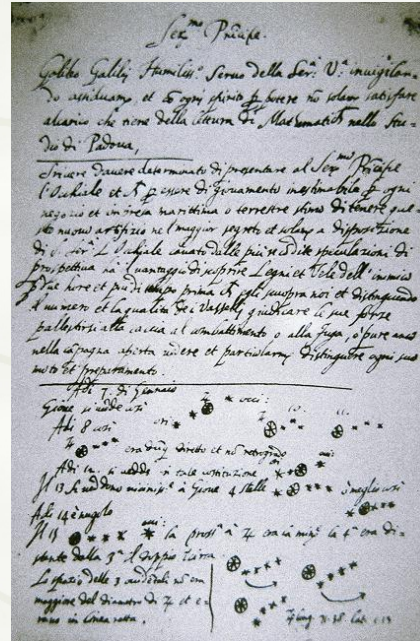 Ser.mo Principe.
Galileo Galilej Humiliss.o Servo della Ser.a V.a invigilan-
do assiduam.te, et cõ ogni spirito p potere nõ solam.te satisfare
alcarico che tiene della lettura di Matematich nello Stu-
dio di Padova,
Scrivere davere determinato di presentare al Ser.mo Principe
l'Occhiale et p essere di giovamento inestimabile p ogni
negozio et impresa marittima o terrestre stimo di tenere que-
sto nuovo artifizio nel maggior segreto et solam a disposizione
di S. Ser.a L'Occhiale cavato dalle più recõdite speculazioni di
prospettiva ha il vantaggio di scoprire Legni et Vele dell'inimico
p due hore et più di tempo prima ch egli scuopra noi et distinguendo
il numero et la qualità de i Vasselli giudicare le sue forze
pallestirsi alla caccia al combattimento o alla fuga, ò pure anco
nella cãpagna aperta vedere et particolarm.te distinguere ogni suo
moto et preparamento.
Adi 7. di Gennaio
Gione si vedde così
Adi 8 così
era dũq diretto et nõ retrogrado
Adi 12. si vedde in tale costituzione
Il 13 si veddono vicinissime à Giove 4 stelle
ò meglio così
Adi 14 è nugolo
Il 15
la pross.a à 4 era la min.e la 4.a era di-
stante dalla 3.a il doppio
Lo spazio delle 3 occidentali nõ era
maggiore del diametro di 4 et e-
rano in linea retta.